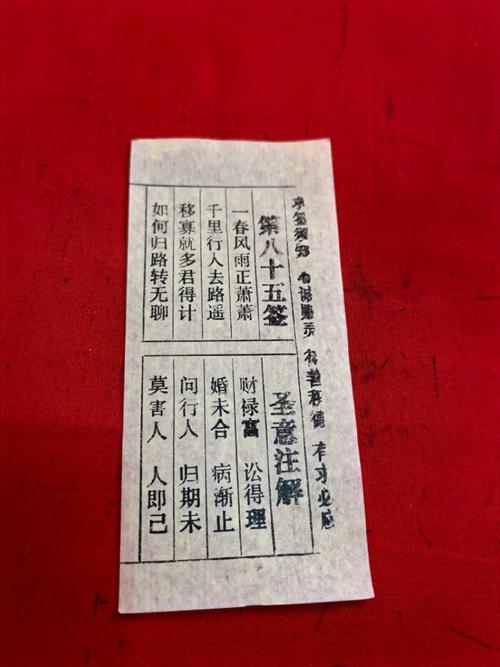 求签须知 心诚则灵 行善积德 有求必应
第八十五签
一春风雨正萧萧
千里行人去路遥
移寡就多君得计
如何归路转无聊
圣意注解
财禄富 讼得理
婚未合 病渐止
问行人 归期未
莫害人 人即己